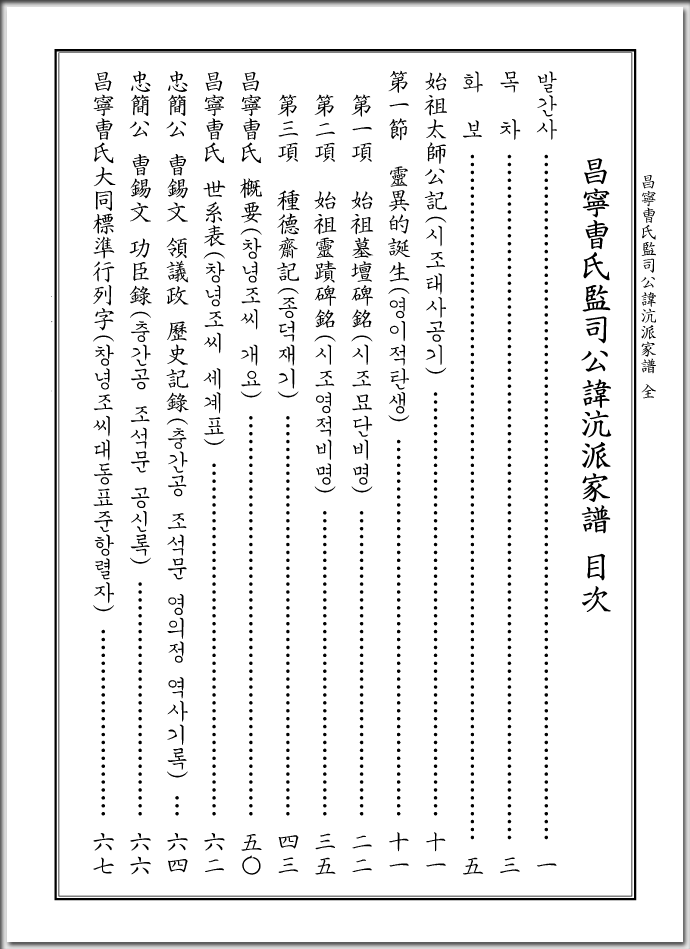 昌寧曺氏監司公諱沆派家譜 全
昌寧曺氏監司公諱沆派家譜 目次
발간사 …… 一
목 차 …… 三
화 보 …… 五
始祖太師公記(시조태사공기) …… 十一
第一節 靈異的誕生(영이적탄생) …… 十一
第一項 始祖墓壇碑銘(시조묘단비명) …… 二二
第二項 始祖靈蹟碑銘(시조영적비명) …… 三五
第三項 種德齋記(종덕재기) …… 四三
昌寧曺氏 槪要(창녕조씨 개요) …… 五〇
昌寧曺氏 世系表(창녕조씨 세계표) …… 六二
忠簡公 曺錫文 領議政 歷史記錄(충간공 조석문 영의정 역사기록) … 六四
忠簡公 曺錫文 功臣錄(충간공 조석문 공신록) …… 六六
昌寧曺氏大同標準行列字(창녕조씨대동표준항렬자) …… 六七